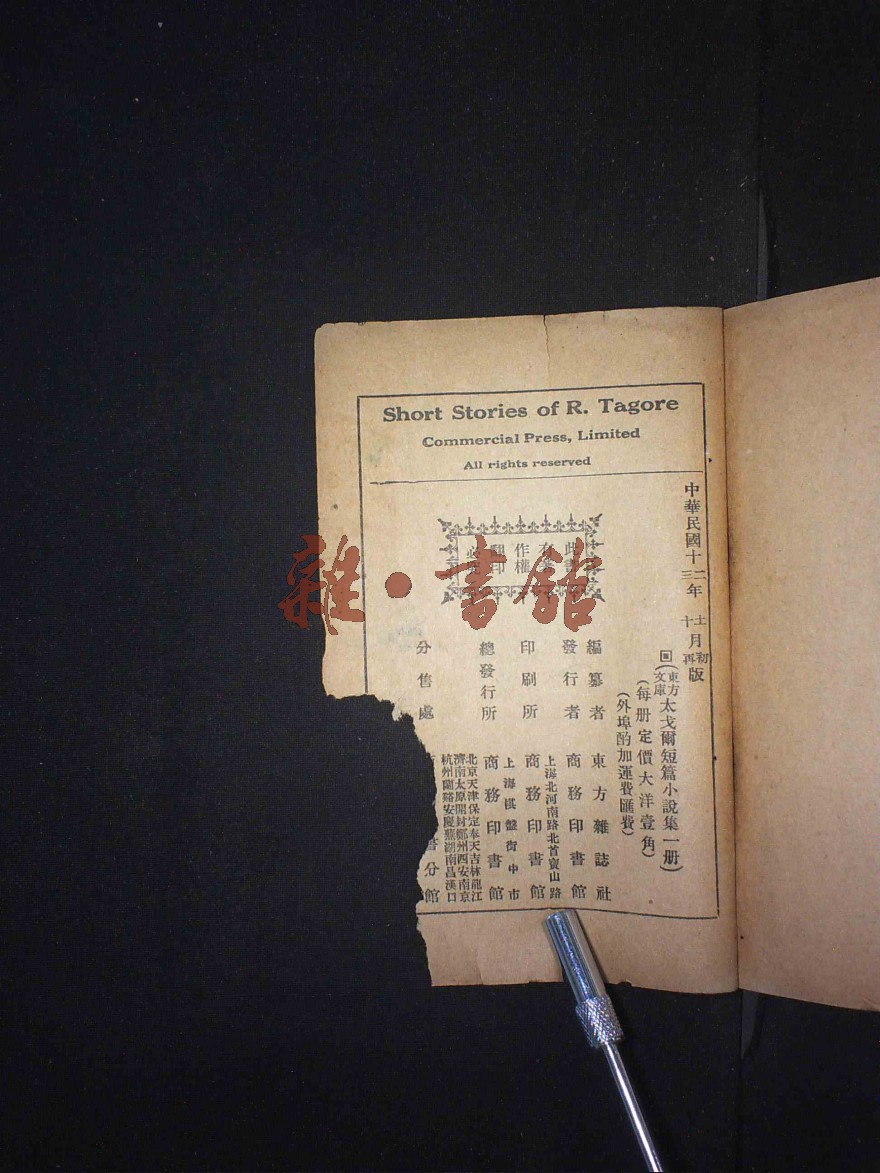 Short Stories of R. Tagore
Commercial Press, Limited
All rights reserved
中華民國十二年十二月初版
中華民國十三年十月再版
(東方文庫)太戈爾短篇小說集一册)
(每册定價大洋壹角)
(外埠酌加運費匯費)
此書
有著
作權
翻印
必究
編纂者 東方雜誌社
發行者 商務印書館
上海北河南路北首寶山路
印刷所 商務印書館
上海棋盤街中市
總發行所 商務印書館
北京天津保定奉天吉林龍江
濟南太原開封鄭州西安南京
杭州蘭谿安慶蕪湖南昌漢口
分售處 書分館
雜·書館